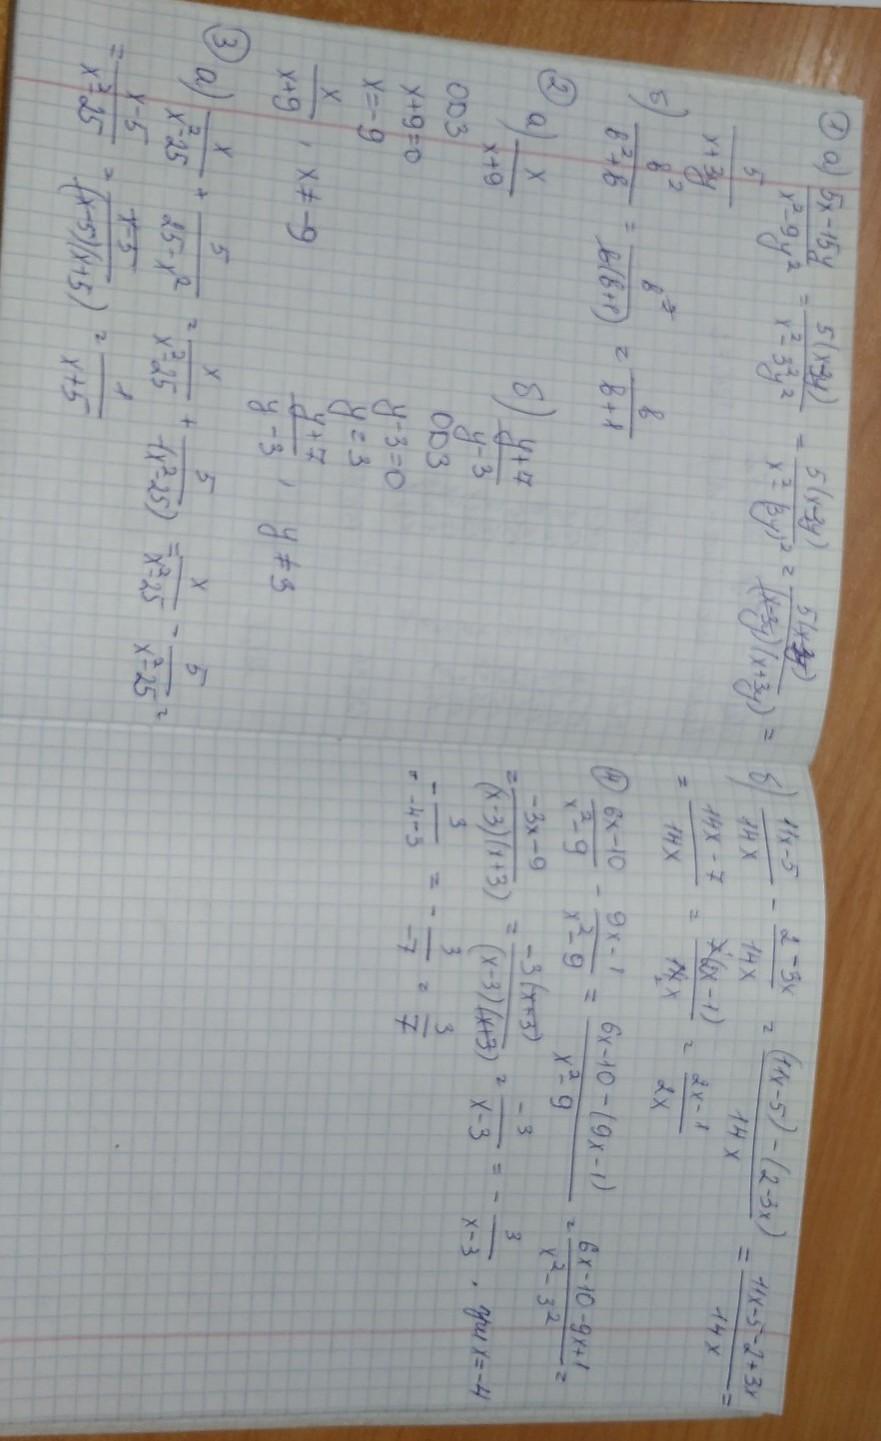 ① а) 5x-15y/x²-9y² = 5(x-3y)/x²-3²y² = 5(x-3y)/x²-(3y)² = 5(x-3y)/(x-3y)(x+3y) =
5/x+3y
б) b²/b²+b = b²/b(b+1) = b/b+1
② а) x/x+9
ОДЗ
x+9=0
x=-9
x/x+9 , x≠-9
б) y+7/y-3
ОДЗ
y-3=0
y=3
y+7/y-3 , y≠3
③ а) x/x²-25 + 5/25-x² = x/x²-25 + 5/-(x²-25) = x/x²-25 - 5/x²-25 =
= x-5/x²-25 = x-5/(x-5)(x+5) = 1/x+5
б) 11x-5/14x - 2-3x/14x = (11x-5)-(2-3x)/14x = 11x-5-2+3x/14x =
= 14x-7/14x = 7(2x-1)/14x = 2x-1/2x
④ 6x-10/x²-9 - 9x-1/x²-9 = 6x-10-(9x-1)/x²-9 = 6x-10-9x+1/x²-3² =
= -3x-9/(x-3)(x+3) = -3(x+3)/(x-3)(x+3) = -3/x-3 = - 3/x-3 , при x=-4
- 3/-4-3 = - 3/-7 = 3/7